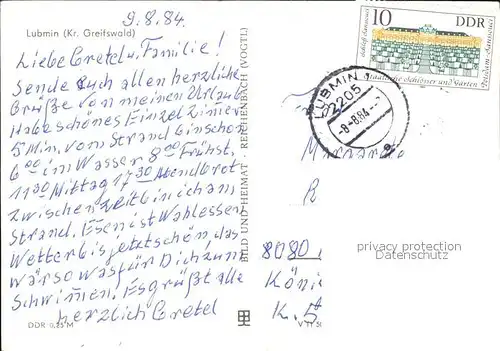 9.8.84.
Lubmin (Kr. Greifswald)
Liebe Gretel u. Familie!
Sende Euch allen herzliche
Grüße von meinen Urlaub
Habe schönes Einzelzimer
5 Min, vom Strand bin schon
6 00 im Wasser 8 00 Frühst,
11 30 Mittag 17 30 Abendbrot
zwischen zeit bin ich am
Strand. Esen ist Wahlessen
Wetter bis jetzt schön, das
wär so was für Dich zum
Schwimen. Es grüßt alle
herzlich Gretel
DDR 0,25 M
BILD UND HEIMAT · REICHENBACH (VOGTL)
10 DDR
Staatliche Schlösser und Gärten
Potsdam-Sanssouci
LUBMIN 1
2205
-9-8.84-
8080
Köni
K. 5
privacy protection
Datenschutz
V 11 50